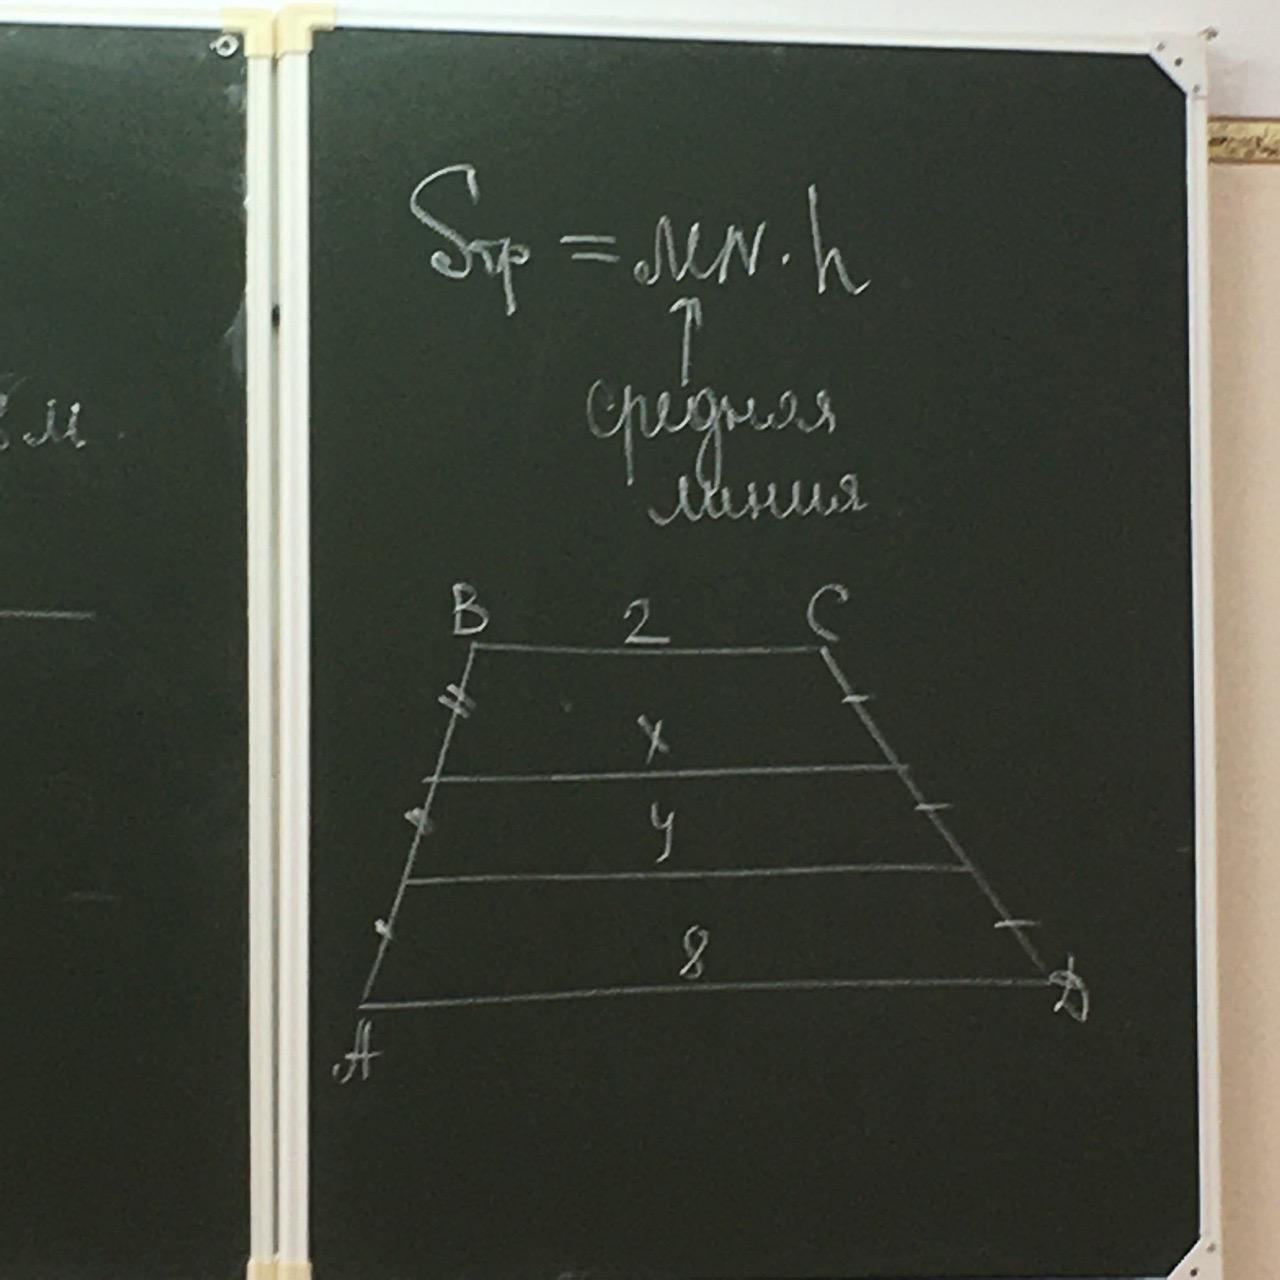 Sтр = MN · h
↑
средняя
линия
B 2 C
x
y
8
A D
м